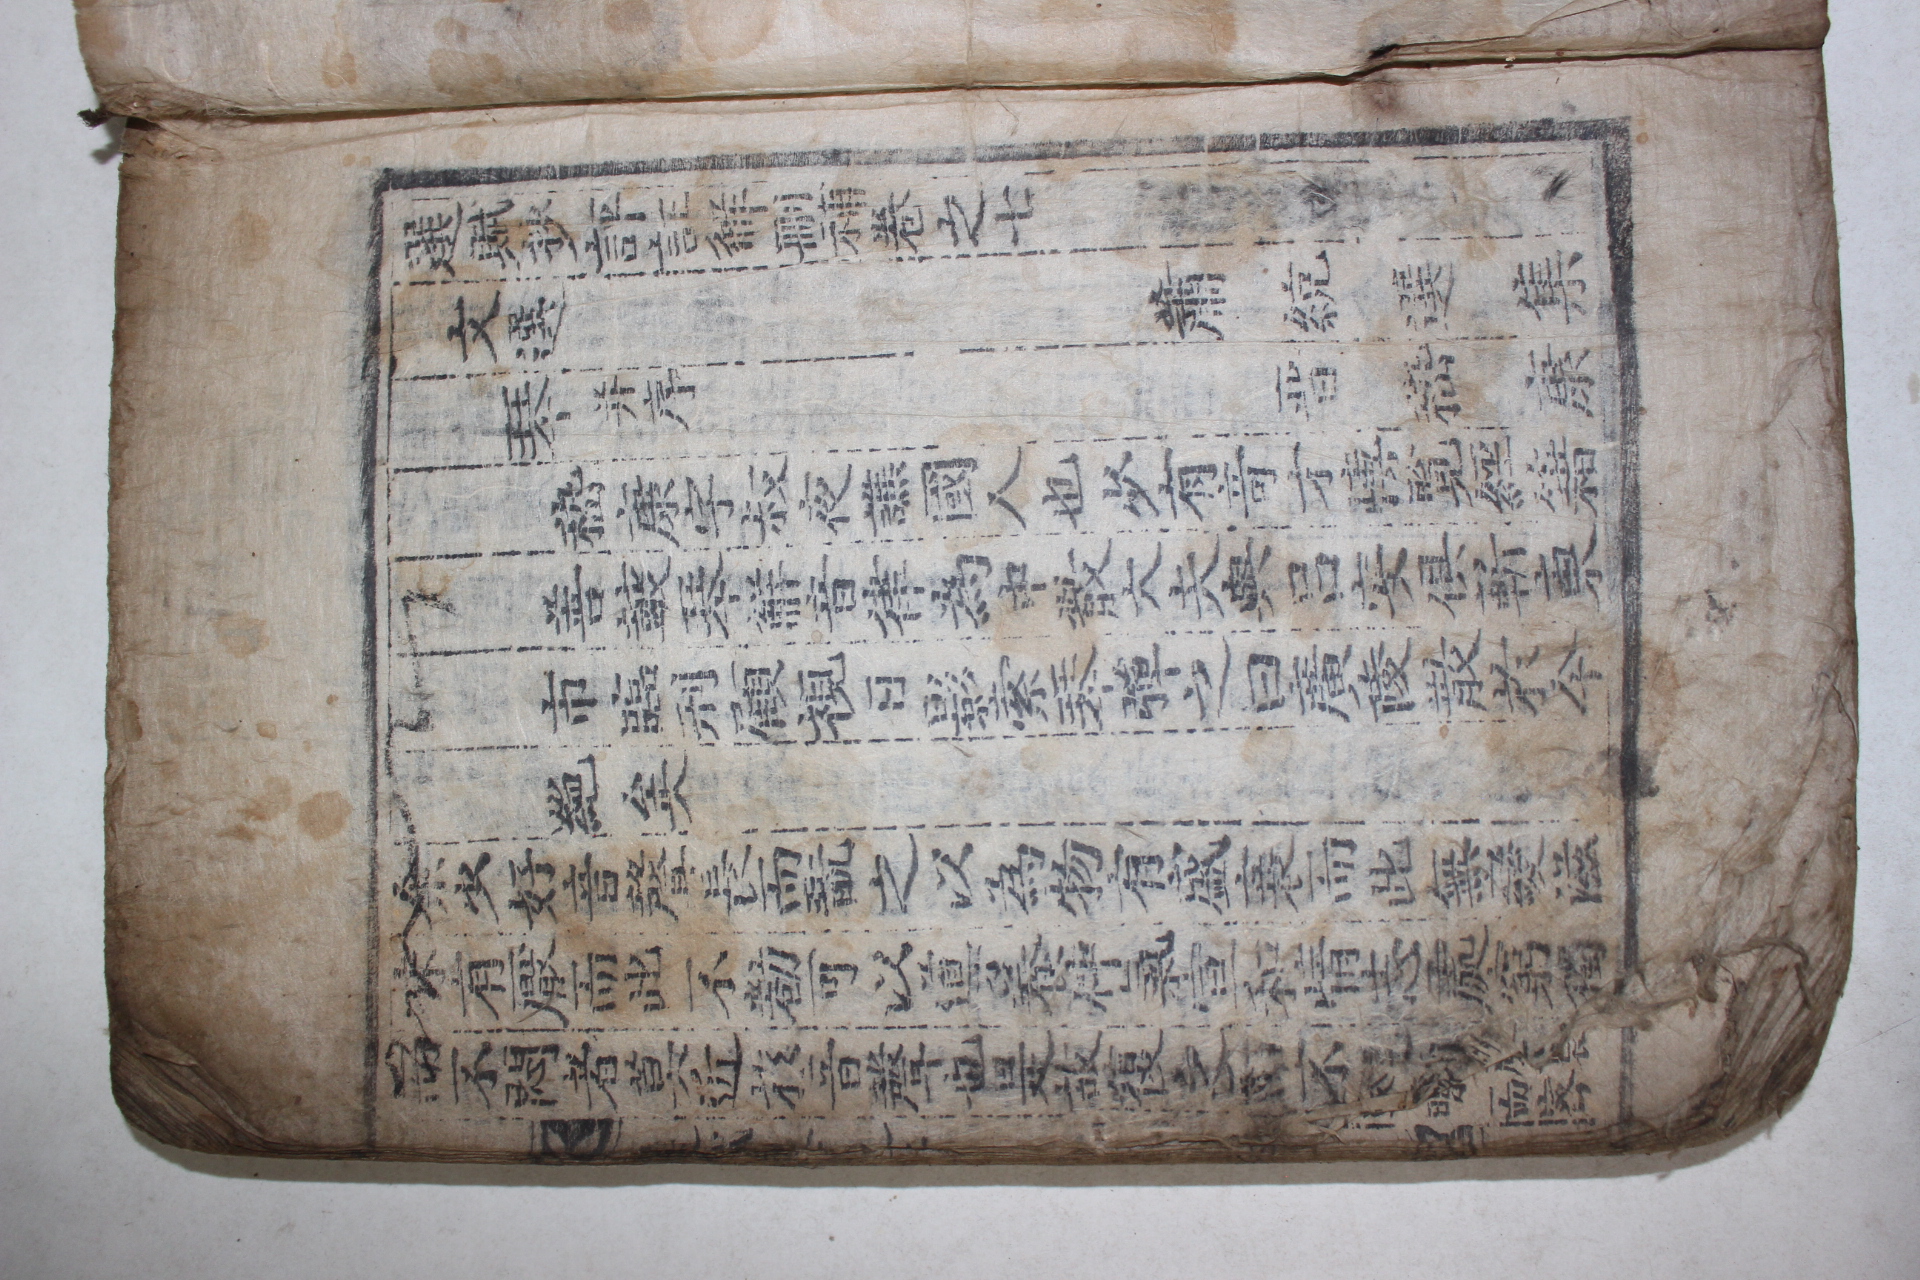 選賦抄評註解刪補卷之七
文選　蕭統選集
琴　并序　晉　嵇康
嵇康字叔夜譙國人也少有奇才博覽經籍
善鼓琴解音律為中散大夫與呂安俱斬東
市臨刑顧視日影索琴彈之曰廣陵散於今
絕矣
余少好音聲長而翫之以為物有盛衰而此無變滋
味有厭而此不勌可以道養神氣宣和情志處窮獨
而不悶者莫近於音聲也是故復之而不足